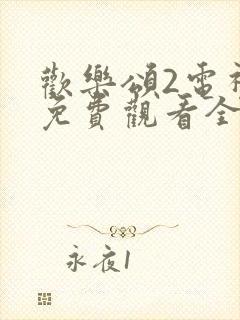 歡樂頌2電視
免費觀看全
永夜1